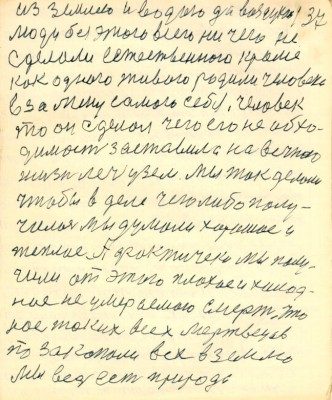 из землёю и водою да воздухом! 37
люди без этого всего ничего не
сделали естественного кроме
как одного живого родили человека
в замену самого себя, человек
то он сделал чего его необхо-
димост заставила на вечною
жизн
мы так делали
чтобы в деле чего либо полу-
чилос мы думали хорошае и
теплае. А фактически мы полу-
чили от этого плохае и холод-
ное не умераемою смерт, это
ное таких всех мертвецов
то закопали всех в землю
мы вед ест природы